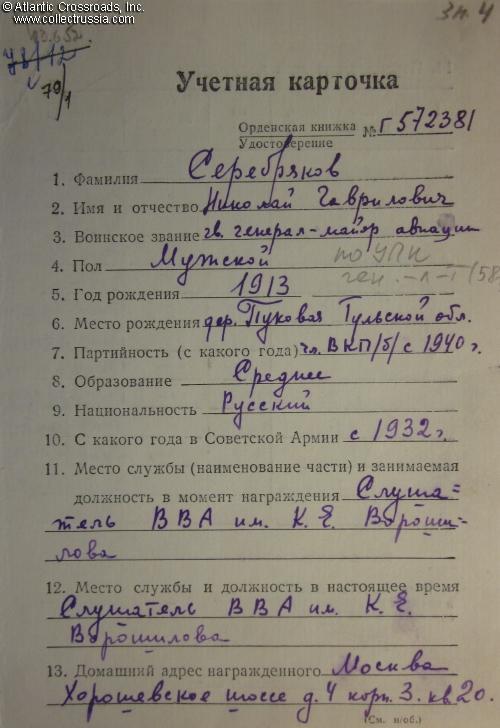 © Atlantic Crossroads, Inc.
www.collectrussia.com
зн. 4
78/12
79/1
Учетная карточка
Орденская книжка № Г 572381
Удостоверение
1. Фамилия Серебряков
2. Имя и отчество Николай Гаврилович
3. Воинское звание гв. генерал-майор авиации
4. Пол Мужской по УПК
ген.-л-т (58)
5. Год рождения 1913
6. Место рождения дер. Пуковая Тульской обл.
7. Партийность (с какого года) чл. ВКП/б/ с 1940 г.
8. Образование Среднее
9. Национальность Русский
10. С какого года в Советской Армии с 1932 г.
11. Место службы (наименование части) и занимаемая
должность в момент награждения Слуша-
тель ВВА им. К. Е. Вороши-
лова
12. Место службы и должность в настоящее время
Слушатель ВВА им. К. Е.
Ворошилова
13. Домашний адрес награжденного Москва
Хорошевское шоссе д. 4 корп. 3. кв. 20.
(См. н/об.)